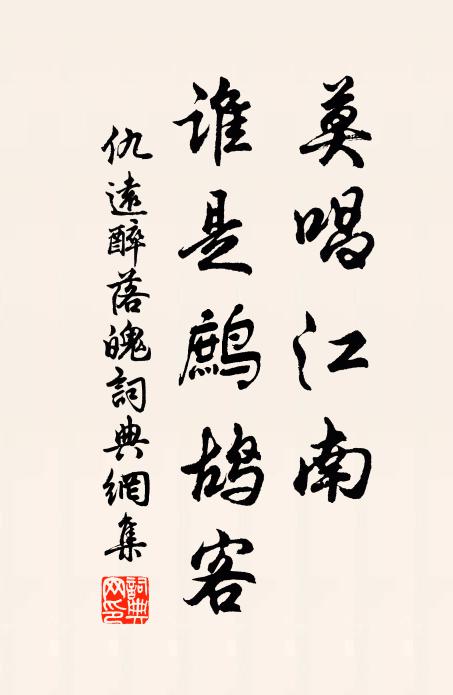 莫唱江南
誰是鷓鴣客
仇遠醉落魄詞典網集
詞典網印